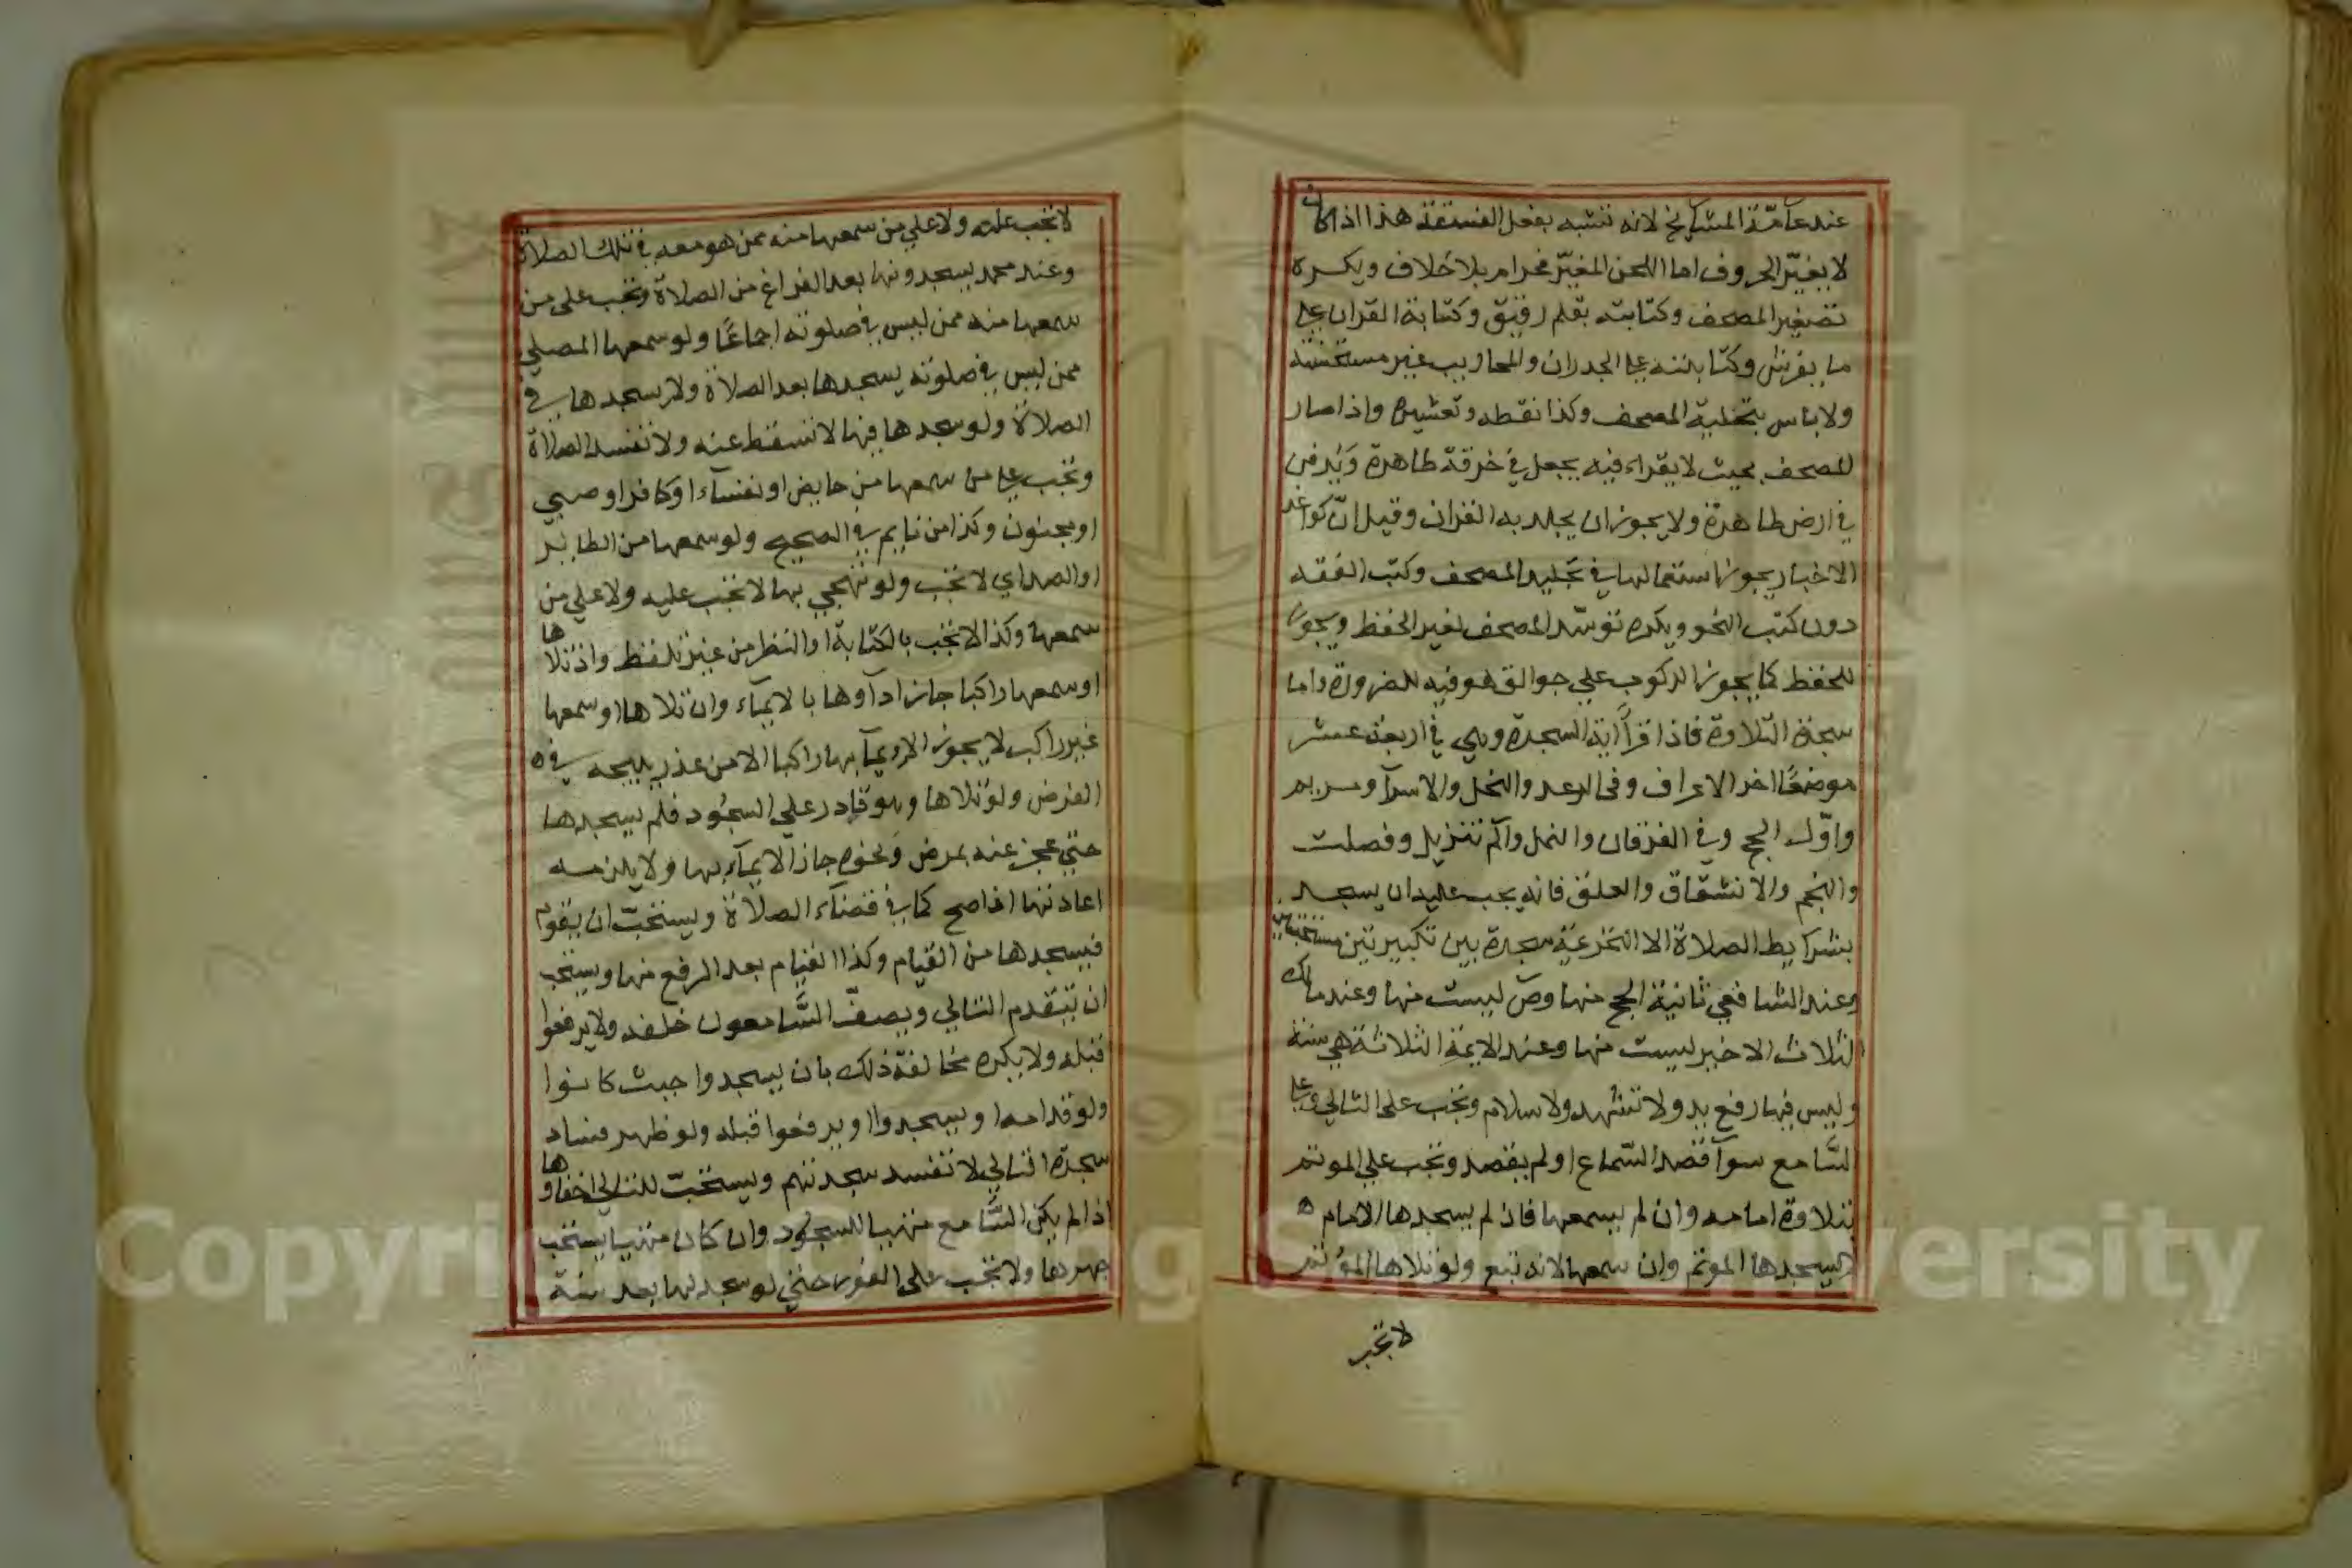 عند عامّة المشايخ لانه تشبه بفعل الفسقة هذا اذا كان
لا يغيّر الحروف اما اللحن المغيّر فحرام بلا خلاف ويكره
تصغير المصحف وكتابته بقلم رقيق وكتابة القران على
ما يفرش وكتابته على الجدران والمحاريب غير مستحسنة
ولا باس بتحلية المصحف وكذا نقطه وتعشيره واذا صار
المصحف بحيث لا يقراء فيه يجعل في خرقة طاهرة ويدفن
في ارض طاهرة ولا يجوز ان يجلد به القران وقيل انّ كواغد
الاخبار يجوز استعمالها في تجليد المصحف وكتب الفقه
دون كتب النحو ويكره توسّد المصحف لغير الحفظ ويجوز
للحفظ كما يجوز الركوب علي جوالق هو فيه للضرورة واما
سجدة التلاوة فاذا قرأ آية السجدة وهي في اربعة عشر
موضعًا اخر الاعراف وفي الرعد والنحل والاسرآ ومريم
واوّل الحج وفي الفرقان والنمل والم تنزيل وفصلت
والنجم والانشقاق والعلق فانه يجب عليه ان يسجد
بشرايط الصلاة الا التحريمة سجدة بين تكبيرتين مستحبتين
وعند الشافعي ثانية الحج منها وص ليست منها وعند مالك
الثلاث الاخير ليست منها وعند الايمة الثلاثة هي سنة
وليس فيها رفع يد ولا تشهد ولا سلام وتجب على التالي وعلى
السّامع سوآ قصد السّماع او لم يقصد وتجب علي الموتم
بتلاوة امامه وان لم يسمعها فان لم يسجدها الامام ه
لا يسجدها الموتم وان سمعها لانه تبع ولو تلاها المؤتم
لا تجب
لا تجب عليه ولا علي من سمعها منه ممن هو معه في تلك الصلاة
وعند محمد يسجدونها بعد الفراغ من الصلاة وتجب على من
سمعها منه ممن ليس في صلوته اجماعًا ولو سمعها المصلي
ممن ليس في صلوته يسجدها بعد الصلاة ولا يسجدها في
الصلاة ولو سجدها فيها لا تسقط عنه ولا تفسد الصلاة
وتجب على من سمعها من حايض او نفسآء او كافر او صبي
او مجنون وكذا من نايم في الصحيح ولو سمعها من الطاير
او الصداي لا تجب ولو تهجي بها لا تجب عليه ولا علي من
سمعها وكذا لا تجب بالكتابة او النظر من غير تلفظ واذا تلاها
او سمعها راكبا جاز ادآوها بالايمآء وان تلاها او سمعها
غير راكب لا يجوز الايمآ بها راكبا الا من عذر يبيحه في ه
الفرض ولو تلاها وهو قادر علي السجُود فلم يسجدها
حتي عجز عنه بمرض ونحوه جاز الايمآء بها ولا يلزمه
اعادتها اذا صح كما في قضآء الصلاة ويستحبّ ان يقوم
فيسجدها من القيام وكذا القيام بعد الرفع منها ويستحب
ان يتقدم التالي ويصفّ السّامعون خلفه ولا يرفعوا
قبله ولا يكره مخالفة ذلك بان يسجدوا حيث كانوا
ولو قدامه او يسجدوا او يرفعوا قبله ولو ظهر فساد
سجدة التالي لا تفسد سجدتهم ويستحبّ للتالي اخفاوها
اذا لم يكن السّامع متهيا للسجود وان كان متهيا يستحب
جهرها ولا تجب على الفور حتي لو سجد لها بعد سنة
Copyright © King Saud University